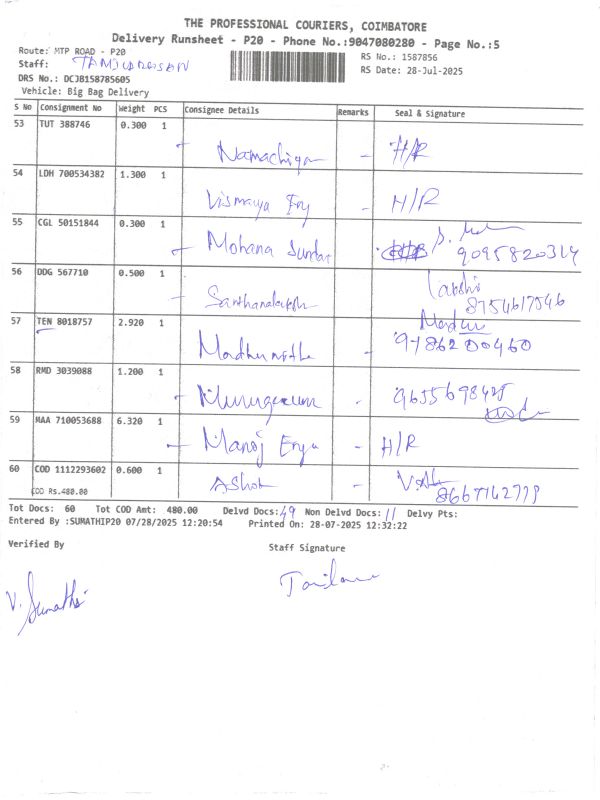 THE PROFESSIONAL COURIERS, COIMBATORE
Delivery Runsheet - P20 - Phone No.:9047080280 - Page No.:5
Route: MTP ROAD - P20
RS No.: 1587856
Staff:
RS Date: 28-Jul-2025
DRS No.: DCJB158785605
Vehicle: Big Bag Delivery
S No Consignment No Weight PCS Consignee Details Remarks Seal & Signature
53 TUT 388746 0.300 1 H/R
54 LDH 700534382 1.300 1 - H/R
55 CGL 50151844 0.300 1 Mohana Sundar
56 DDG 567710 0.500 1
8754617546
57 TEN 8018757 2.920 1
58 RMD 3039088 1.200 1 -
59 MAA 710053688 6.320 1 Manoj - H/R
60 COD 1112293602 0.600 1 Ashok -
COD Rs.480.00
Tot Docs: 60 Tot COD Amt: 480.00 Delvd Docs: 49 Non Delvd Docs: 11 Delvy Pts:
Entered By :SUMATHIP20 07/28/2025 12:20:54 Printed On: 28-07-2025 12:32:22
Verified By
Staff Signature
V. Sumathi